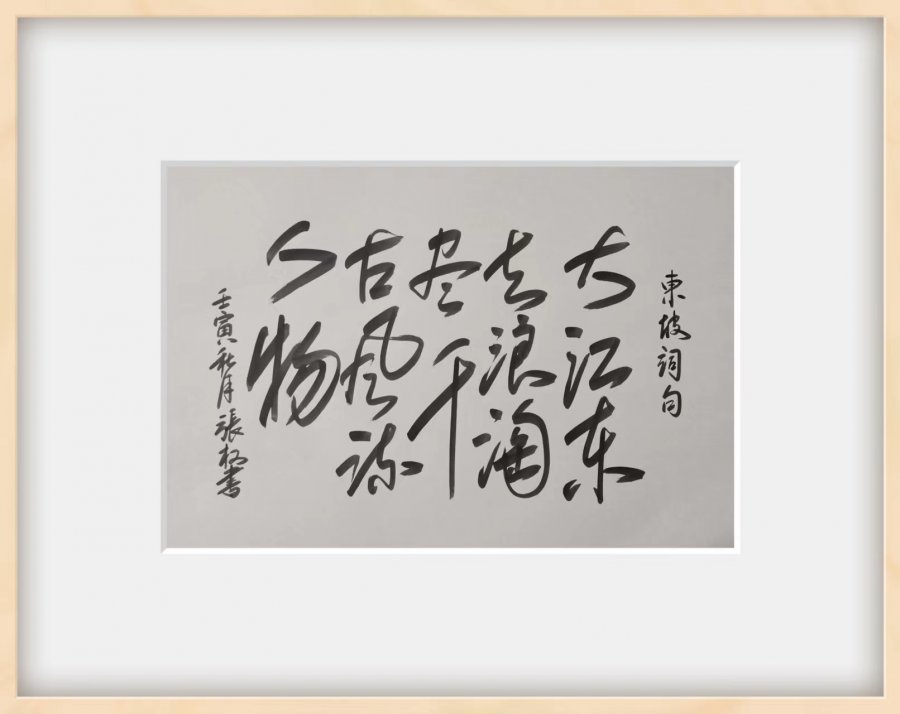 東坡詞句
大江东
去浪淘
尽千
古风流
人物
壬寅秋月張松書